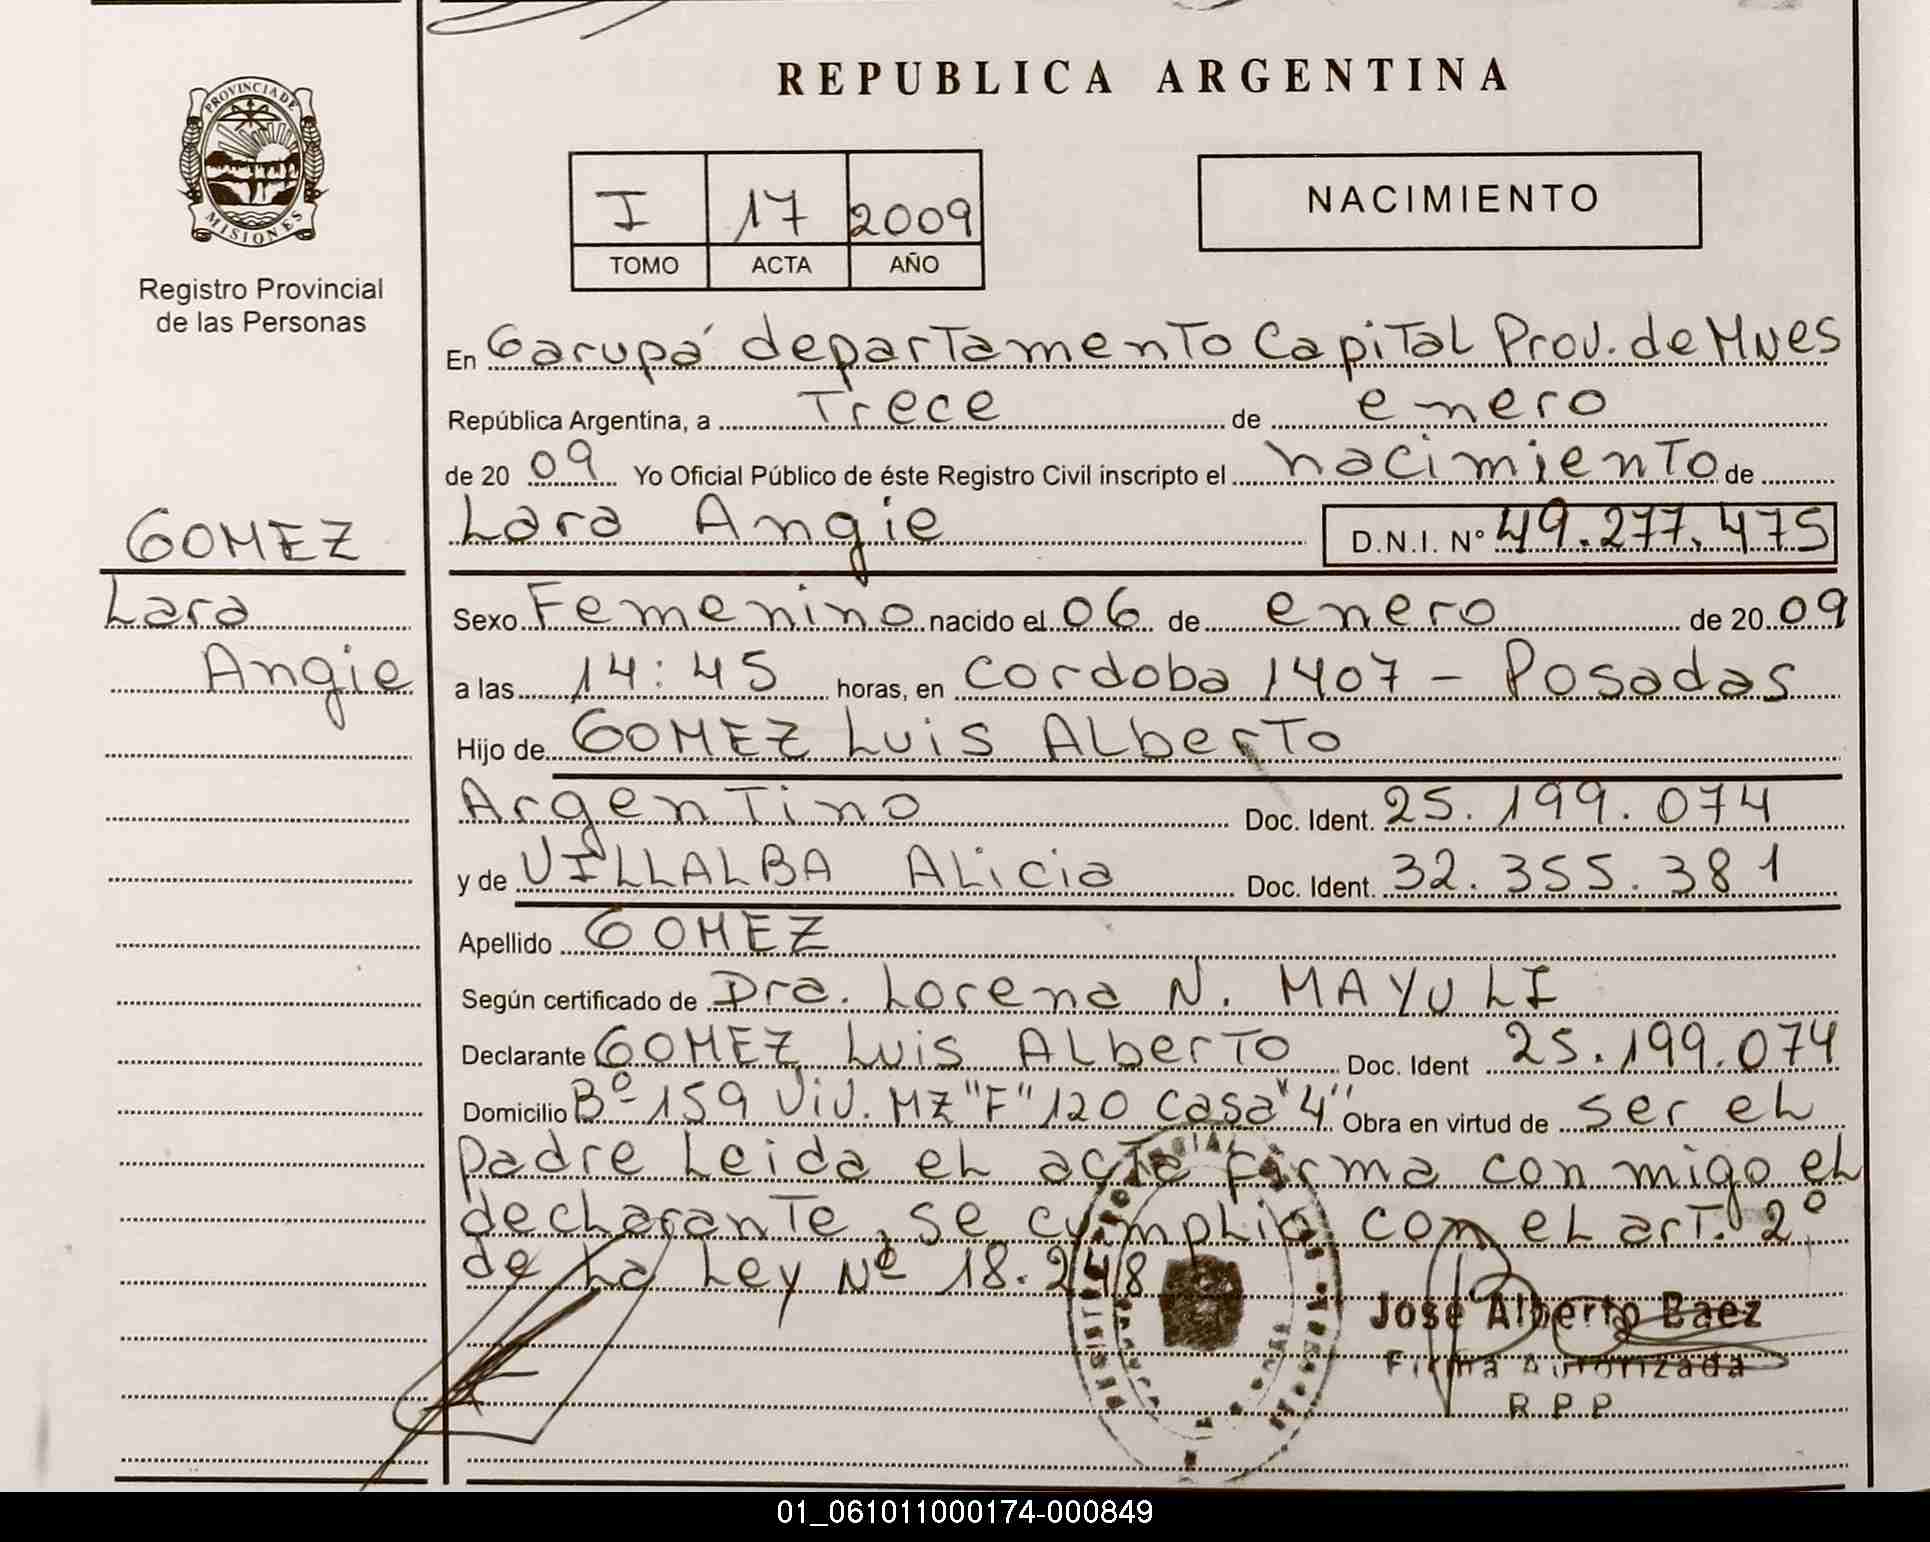 REPUBLICA ARGENTINA
PROVINCIA DE
MISIONES
Registro Provincial
de las Personas
I 17 2009
TOMO ACTA AÑO
NACIMIENTO
En Garupá departamento Capital Prov. de Mnes
República Argentina, a Trece de enero
de 20 09 Yo Oficial Público de éste Registro Civil inscripto el nacimiento de
GOMEZ
Lara
Angie
Lara Angie D.N.I. N° 49.277.475
Sexo Femenino nacido el 06 de enero de 20 09
a las 14:45 horas, en Cordoba 1407 - Posadas
Hijo de GOMEZ Luis Alberto
Argentino Doc. Ident. 25.199.074
y de VILLALBA Alicia Doc. Ident. 32.355.381
Apellido GOMEZ
Según certificado de Dra. Lorena N. MAYULI
Declarante GOMEZ Luis Alberto Doc. Ident 25.199.074
Domicilio B° 159 Viv. MZ "F" 120 casa "4" Obra en virtud de ser el
padre Leida el acta firma con migo el
declarante, se cumplio con el art. 2°
de La Ley N° 18.248
José Alberto Baez
Firma Autorizada
R P P
01_061011000174-000849